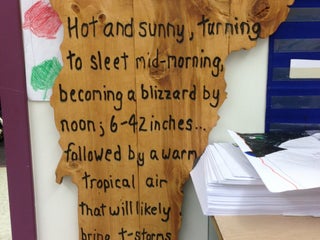 Hot and sunny, turning
to sleet mid-morning,
becoming a blizzard by
noon; 6-42 inches...
followed by a warm
tropical air
that will likely
bring t-storms